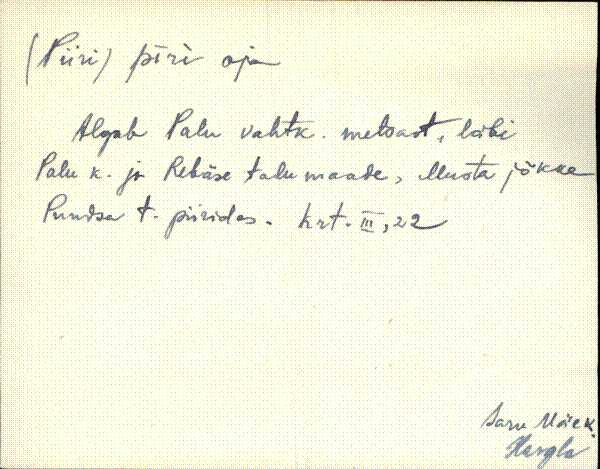 (Piiri) piri oja
Algab Palu vahtk. metsast, läbi
Palu k. ja Rebäse talu maade, Musta jõkke
Pundsa t. piirides. krt. III, 22
Saru
Hargla